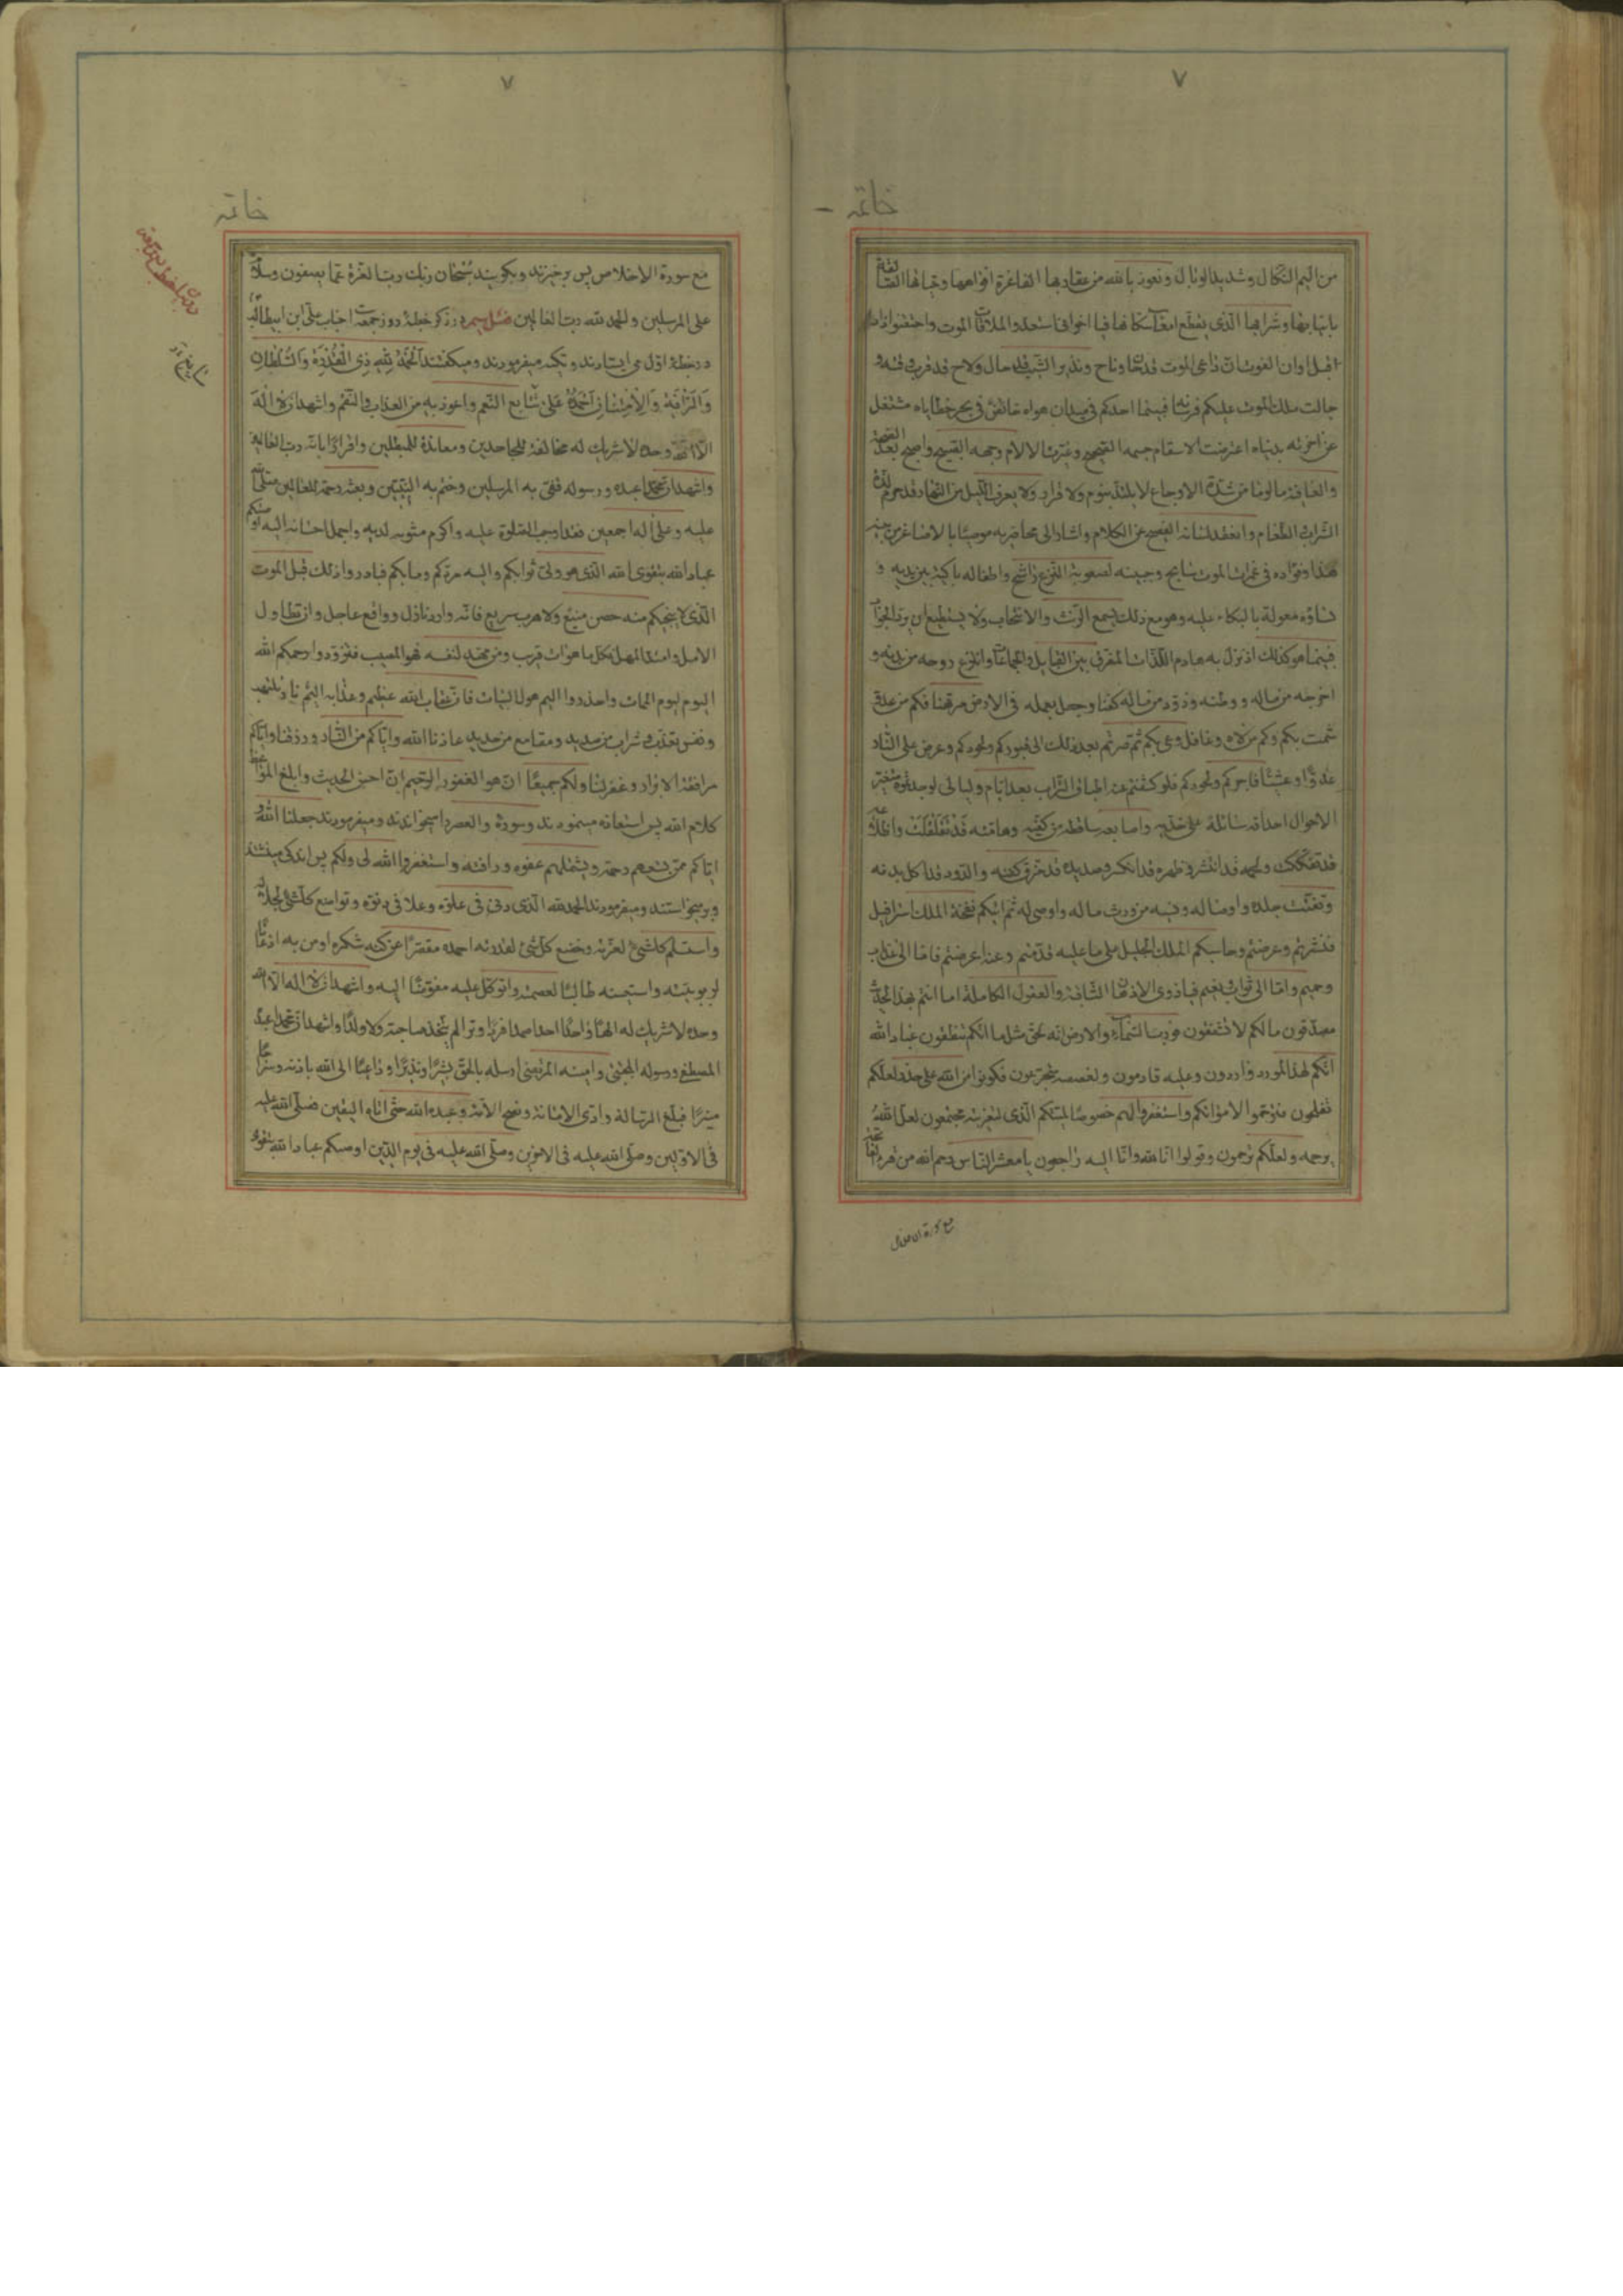 ٧
خاتمه
من اليم النكال وشديد الوبال ونعوذ بالله من عقاربها الفاغرة افواهها وحياتها
بانيابها وشرابها الذى يقطع امعاء سكانها فيا اخوانى استعدوا لملاقات الموت
اقبل اوان الفوت فان داعى الموت قد وناح ونذير الشيب قد حال ولاح قد قرب
جالت ملك الموت عليكم فرسانه فبينما احدكم فى ميدان هواه خائض فى بحر خطاياه مشتغل
عن اخرته بدنياه اعترضت الاسقام جسمه الصحيح وغيرت الالام وجهه واصبح بعد
والعافية مالوفا من شدة الاوجاع لا يلتذ بنوم ولا قرار ولا يعرف الليل من النهار قد حرم لذة
الشراب الطعام وانعقد لسانه الفصيح عن الكلام واشار الى محاضريه موصيا بالاصاغر من
هذا وفؤاده فى غمرات الموت سابح وجبينه لصعوبة النزع راشح واطفاله باكية بين يديه و
نساؤه معولة بالبكاء عليه وهو مع ذلك يسمع والانتحاب ولا يستطيع ان يرد الجواب
فبينما هو كذلك اذ نزل به هادم اللذات المفرق بين القبايل والجماعات وانتزع روحه من بدنه و
اخرجه من ماله ووطنه وزود من ماله كفنا وجعل بعمله فى الارض مرتهنا فكم من عدو
شمت بكم وكم من وغافل وعى بكم ثم صرتم بعد ذلك الى قبوركم ولحودكم وعرض على النار
غدوا وعشيا فاجركم ولحودكم فلو كشفتم عنه اطباق التراب بعد ايام وليالى لوجدتموه متغير
الاحوال احداقه سائلة على خديه واصابعه ساقطة من كفيه وهامته قد تقلقلت
قد تفككت ولحمه قد انتشر وظهره قد انكسر وصديده قد خرق كفنه والدود قد اكل بدنه
وتفتت جلده واوصاله ونسيه من ورث ماله واوصى له ثم اتيكم نفخة الملك اسرافيل
فنشرتم وعرضتم وحاسبكم الملك الجليل على ما عليه قدمتم وعنه اعرضتم فاما الى عذاب
وحميم واما الى ثواب نعيم فيا ذوى الاذهان الثاقبة والعقول الكاملة اما انتم بهذا الحديث
مصدقون ما لكم لا تشفقون فورب السماء والارض انه لحق مثل ما انكم تنطقون عباد الله
انكم لهذا المورد واردون وعليه قادمون ولغصصه متجرعون فكونوا من الله على حذر لعلكم
تفلحون وترحموا لامواتكم واستغفروا لهم خصوصا لميتكم الذى لتعزيته مجتمعون لعل الله
يرحمه ولعلكم ترحمون وقولوا انا لله وانا اليه راجعون يا معشر الناس رحم الله من قرء
مع سورة الاخلاص
٧
خاتمه
مع سورة الاخلاص پس برخيزند وبگويند سبحان ربك رب العزة عما يصفون وسلام
على المرسلين والحمد لله رب العالمين فصل سيم در ذكر خطبهٔ روز جمعه جناب على ابن ابيطالب
در خطبهٔ اول مى ايستادند و تكيه ميفرمودند وميگفتند الحمد لله ذى القدرة والسلطان
والرأفة والامتنان احمده على تتابع النعم واعوذ به من العذاب والنقم واشهد ان لا اله
الا الله وحده لا شريك له مخالفة للجاحدين ومعاندة للمبطلين واقرارا بانه رب العالمين
واشهد ان محمدا عبده ورسوله قفى به المرسلين وختم به النبيين وبعثه رحمة للعالمين صلى الله
عليه وعلى اله اجمعين فقد اوجب الصلوة عليه واكرم مثويه لديه واجمل احسانه اليه اوصيكم
عباد الله بتقوى الله الذى هو ولى ثوابكم واليه مردكم ومابكم فبادروا ذلك قبل الموت
الذى لا ينجيكم منه حصن منيع ولا هرب سريع فانه وارد نازل وواقع عاجل وان تطاول
الامل وامتد المهل فكل ما هو ات قريب ومن مهد لنفسه فهو المصيب فتزودوا رحمكم الله
اليوم ليوم الممات واحذروا اليم هول البيات فان عقاب الله عظيم وعذابه اليم نار تلتهب
ونفس تعذب وشراب من صديد ومقامع من حديد عاذنا الله واياكم من النار ورزقنا واياكم
مرافقة الابرار وغفر لنا ولكم جميعا انه هو الغفور الرحيم ان احسن الحديث وابلغ الموعظه
كلام الله پس استعاذه مينمودند وسورهٔ والعصر را ميخواندند وميفرمودند جعلنا الله و
اياكم ممن تسعهم رحمته ويشملهم عفوه ورافته واستغفروا الله لى ولكم پس اندكى مينشستند
وبرميخواستند وميفرمودند الحمد لله الذى دنى فى علوه وعلا فى دنوه وتواضع كل شئ لجلاله
واستسلم كل شئ لعزته وخضع كل شئ لقدرته احمده مقصرا عن كنه شكره اومن به اذعانا
لربوبيته واستعينه طالبا لعصمته واتوكل عليه مفوضا اليه واشهد ان لا اله الا الله
وحده لا شريك له الها واحدا احدا صمدا فردا وترا لم يتخذ صاحبة ولا ولدا واشهد ان محمدا عبده
المصطفى ورسوله المجتبى وامينه المرتضى ارسله بالحق بشيرا ونذيرا وداعيا الى الله باذنه وسراجا
منيرا فبلغ الرسالة وادى الامانة ونصح الامة وعبد الله حتى اتاه اليقين فصلى الله عليه
فى الاولين وصلى الله عليه فى الاخرين وصلى الله عليه فى يوم الدين اوصيكم عباد الله بتقوى